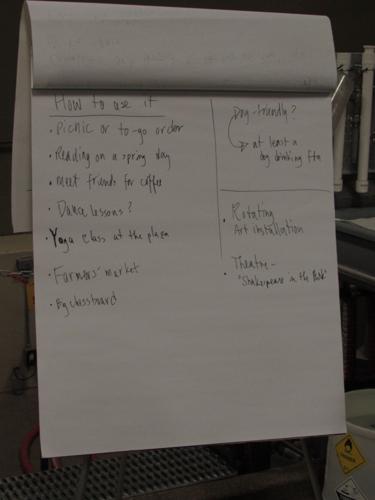 How to use it
• Picnic or to-go order
• Reading on a spring day
• meet friends for coffee
• Dance lessons?
• Yoga class at the plaza
• Farmers' market
• Big chessboard
Dog-friendly?
at least a
dog drinking ftn
• Rotating
Art installation
• Theatre -
"Shakespeare in the Park"